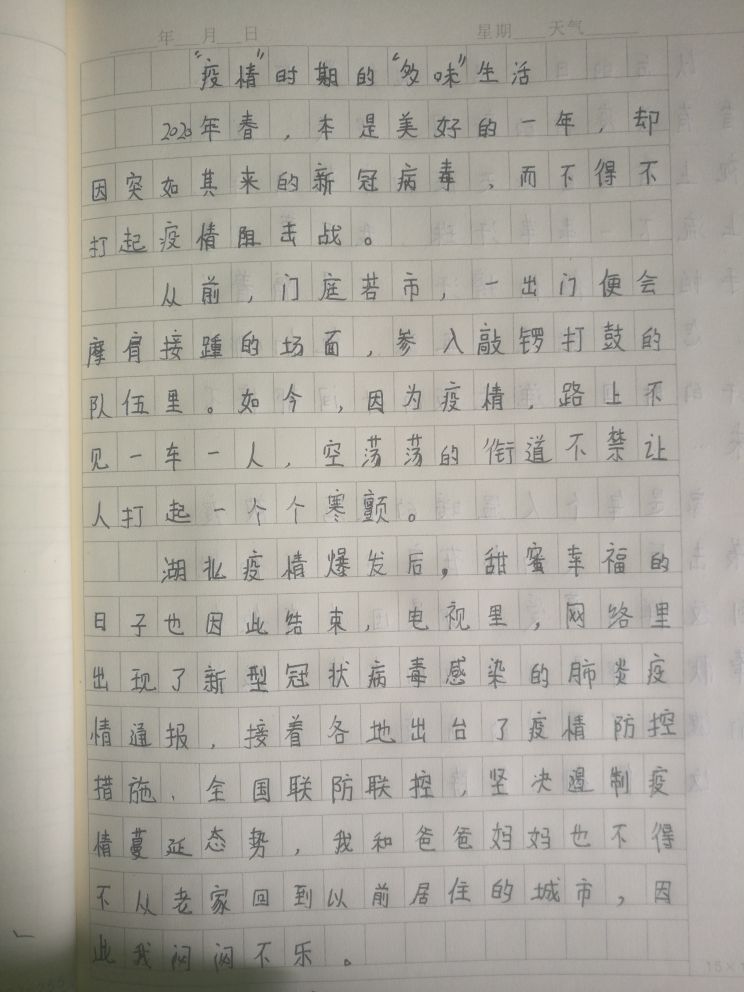 年 月 日 星期 天气
“疫情”时期的“多味”生活
2020年春，本是美好的一年，却
因突如其来的新冠病毒，而不得不
打起疫情阻击战。
从前，门庭若市，一出门便会
摩肩接踵的场面，参入敲锣打鼓的
队伍里。如今，因为疫情，路上不
见一车一人，空荡荡的街道不禁让
人打起一个个寒颤。
湖北疫情爆发后，甜蜜幸福的
日子也因此结束，电视里，网络里
出现了新型冠状病毒感染的肺炎疫
情通报，接着各地出台了疫情防控
措施、全国联防联控，坚决遏制疫
情蔓延态势，我和爸爸妈妈也不得
不从老家回到以前居住的城市，因
此我闷闷不乐。